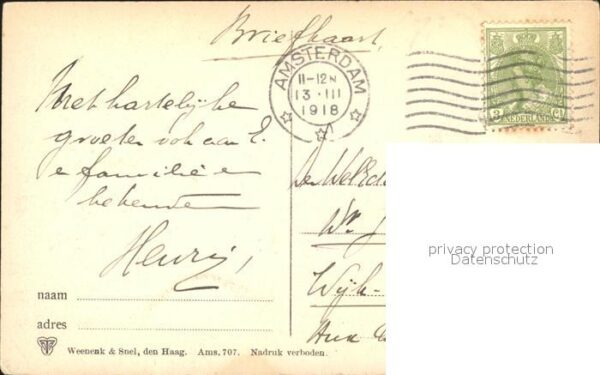 Briefkaart
AMSTERDAM
11-12 N
13 · III
1918
3 Ct
NEDERLAND
Met hartelijke
groeten ook aan E.
en familie en
bekende
Henri,
Wijk
privacy protection
Datenschutz
naam
adres
Weenenk & Snel, den Haag. Ams. 707. Nadruk verboden.